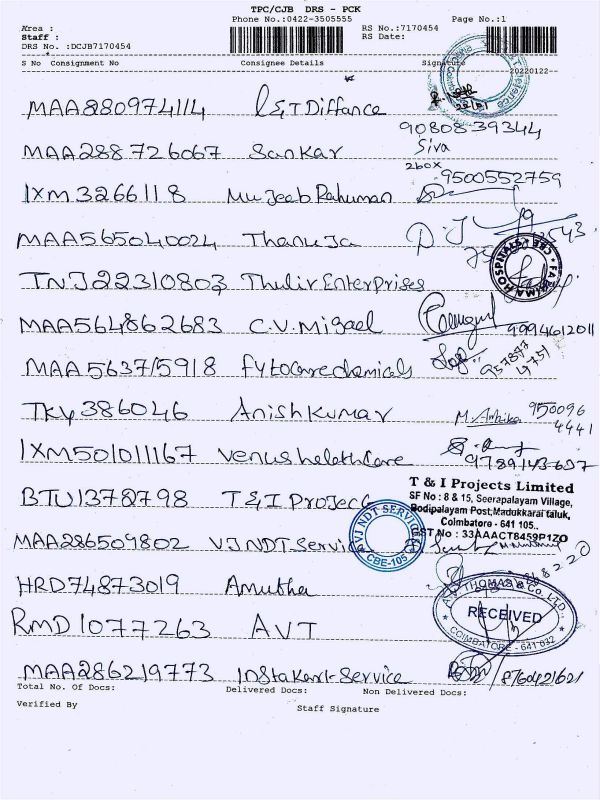 TPC/CJB DRS - PCK
Area : Phone No.:0422-3505555 RS No.:7170454 Page No.:1
Staff : RS Date:
DRS No. :DCJB7170454
S No Consignment No Consignee Details Signature 20220122
MAA880974114 L&T Diffance
9080839344
MAA288726067 Sankar Siva
2 box
9500552759
IXM3266118 Mujeeb Rahuman
MAA565040024 Thanuja
FATHIMA HOSPITALS CBE
TNJ22310803 Thulir Enterprises
MAA564862683 C.V. Migael 9994612011
MAA563715918 Fytocarechemicals
TKY386046 Anish Kumar M. Ambika 950096
4441
IXM501011167 Venus helethCare
9789143697
T & I Projects Limited
SF No : 8 & 15, Seerapalayam Village,
Bodipalayam Post, Madukkarai taluk,
Coimbatore - 641 105..
BTU1378798 T&I Project
GST No : 33AAACT8459P1ZO
MAA286509802 VJNDT Service
VJ NDT SERVICE CBE-105
HRD74873019 Amutha
A.V. THOMAS & Co. LTD.,
RECEIVED
COIMBATORE - 641 032
RMD1077263 AVT
MAA286219773 Instakart-Service 8760421621
Total No. Of Docs: Delivered Docs: Non Delivered Docs:
Verified By Staff Signature